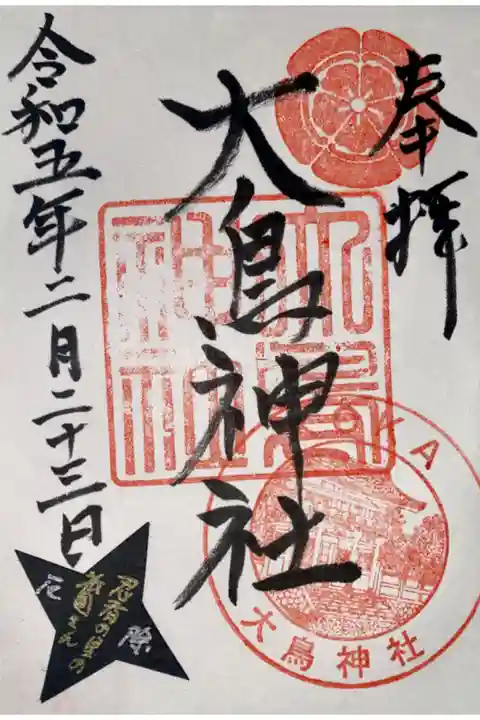 奉拝
大鳥神社
令和五年二月二十三日
大鳥神社
忍者の里の
祇園さん